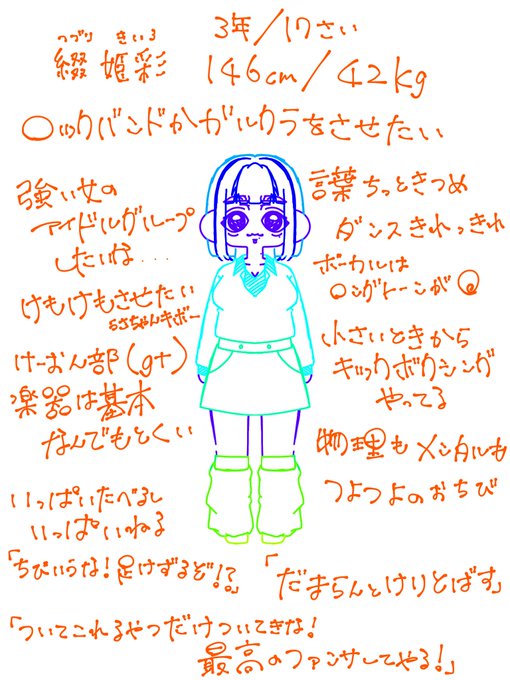 つづり きいろ
綴 姫彩
3年/17さい
146cm/42kg
ロックバンドかガルクラをさせたい
強い女の
アイドルグループ
したいな....
けもけもさせたい
らさちゃんキボー
けーおん部(gt)
楽器は基本
なんでもとくい
いっぱいたべるし
いっぱいねる
言葉ちっときつめ
ダンスきれっきれ
ボーカルは
ロングトーンが◎
小さいときから
キックボクシング
やってる
物理もメンタルも
つよつよのおちび
「ちびいうな!足けずるぞ!?」
「だまらんとけりとばす」
「ついてこれるやつだけついてきな!
最高のファンサしてやる!」